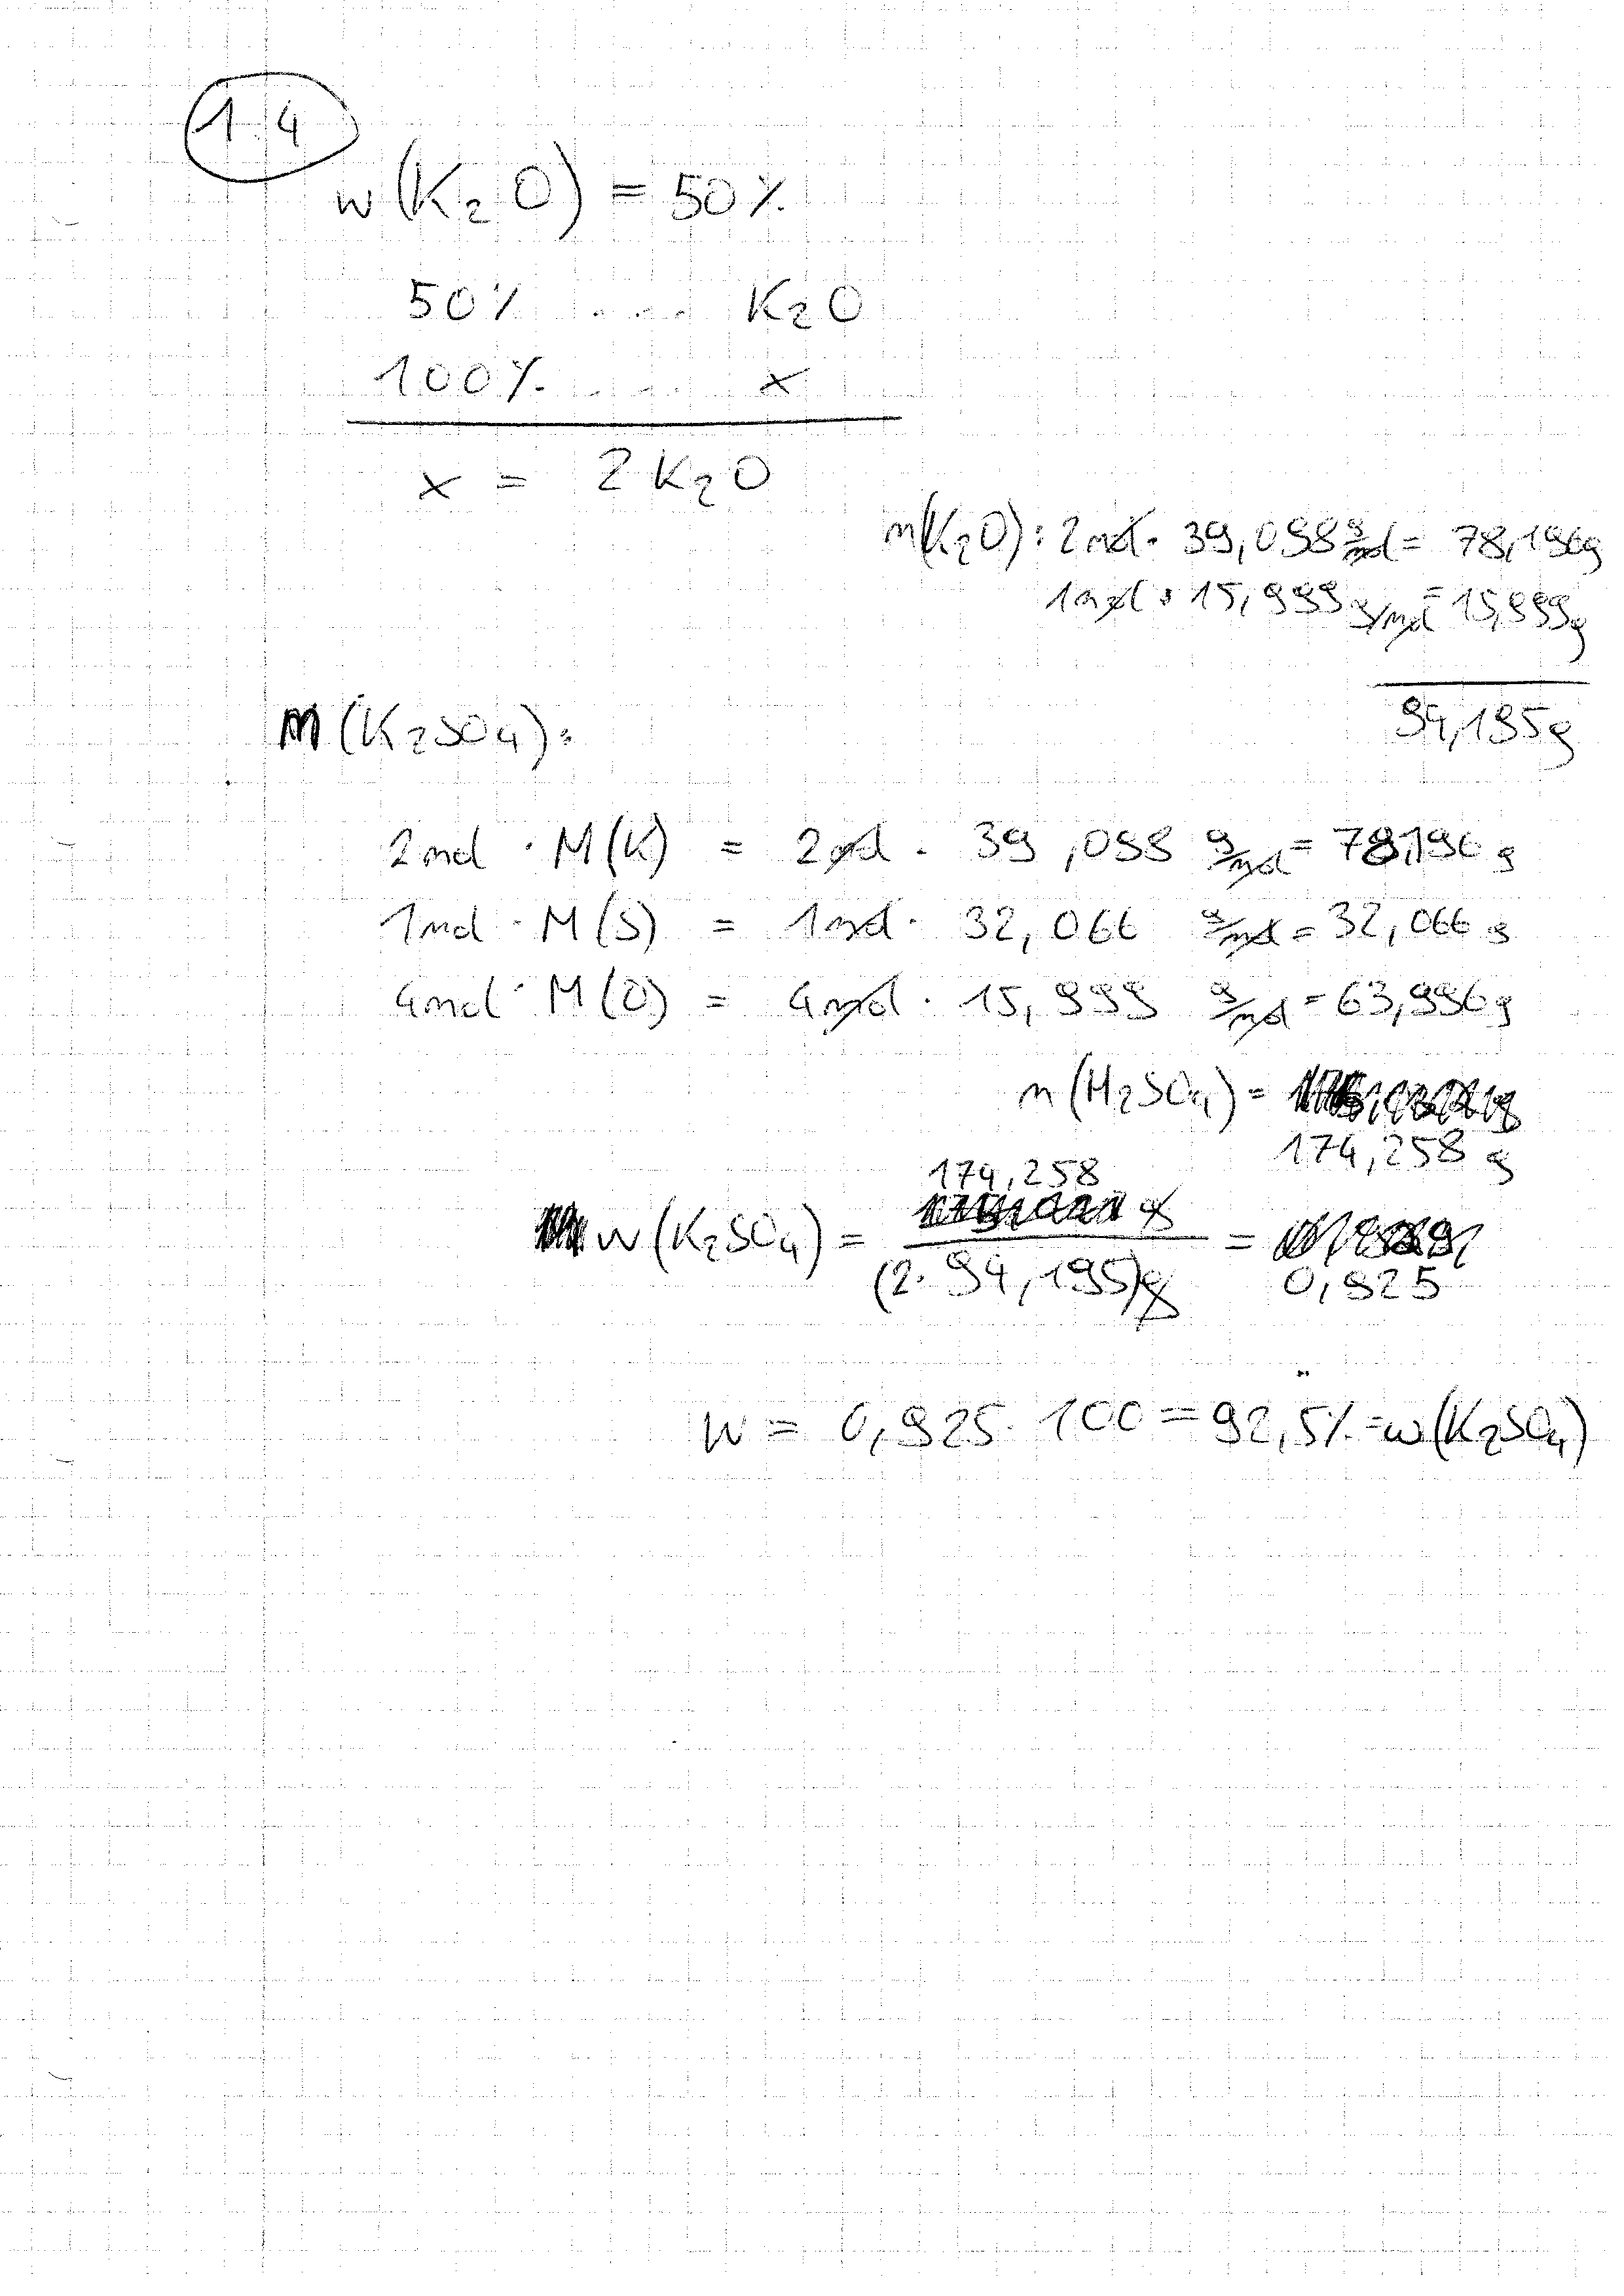 1.4
w(K₂O) = 50%
50% ..... K₂O
100% ..... x
x = 2 K₂O
m(K₂O): 2mol · 39,098 g/mol = 78,196g
1mol · 15,999 g/mol = 15,999g
94,195g
M(K₂SO₄):
2mol · M(K) = 2mol · 39,098 g/mol = 78,196 g
1mol · M(S) = 1mol · 32,066 g/mol = 32,066 g
4mol · M(O) = 4mol · 15,999 g/mol = 63,996g
m(H₂SO₄) =
174,258 g
174,258
w(K₂SO₄) = g / (2 · 94,195)g =
0,925
w = 0,925 · 100 = 92,5% = w(K₂SO₄)